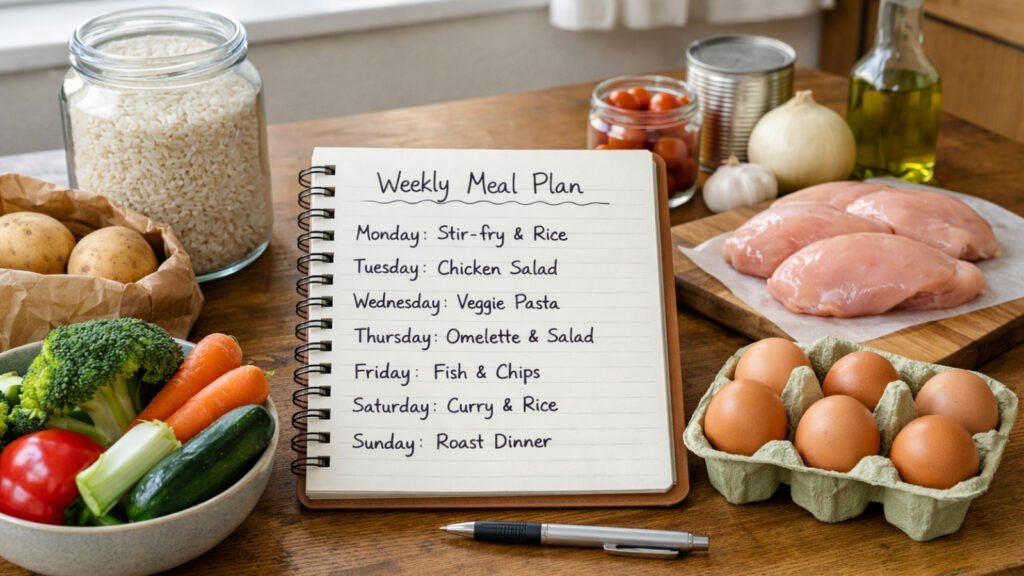 Weekly Meal Plan
Monday: Stir-fry & Rice
Tuesday: Chicken Salad
Wednesday: Veggie Pasta
Thursday: Omelette & Salad
Friday: Fish & Chips
Saturday: Curry & Rice
Sunday: Roast Dinner